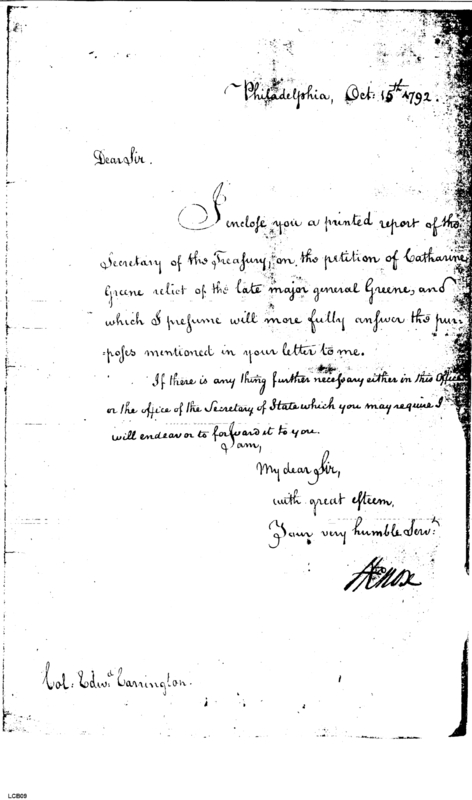 Philadelphia, Oct: 15th 1792.
Dear Sir.
I enclose you a printed report of the
Secretary of the Treasury, on the petition of Catharine
Greene relict of the late major general Greene, and
which I presume will more fully answer the pur-
-poses mentioned in your letter to me.
If there is any thing further necessary either in this Office
or the office of the Secretary of State which you may require I
will endeavor to forward it to you.
I am,
My dear Sir,
with great esteem,
Your very humble Servt:
HKnox
Col: Edwd. Carrington.
LCB09